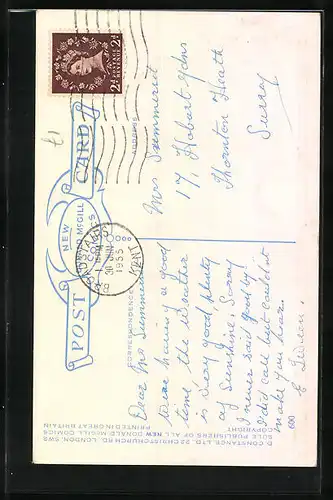 £1
POSTAGE REVENUE
2D 2D
POST CARD
NEW
DONALD McGILL
COMICS
BROADSTAIRS
30 JUN
1955
KENT
CORRESPONDENCE
ADDRESS
Dear Mrs Summerest
We are having a good
time the weather
is very good, plenty
of sunshine. Sorry
I never said good by!
I did call but couldn't
make you hear.
Mrs Summerest
17, Hobart Gdns
Thornton Heath
Surrey
600
© CONSTANCE LTD., 22 CHRISTCHURCH RD., LONDON, SW2
SOLE PUBLISHERS OF ALL NEW DONALD McGILL COMICS
COPYRIGHT
PRINTED IN GREAT BRITAIN